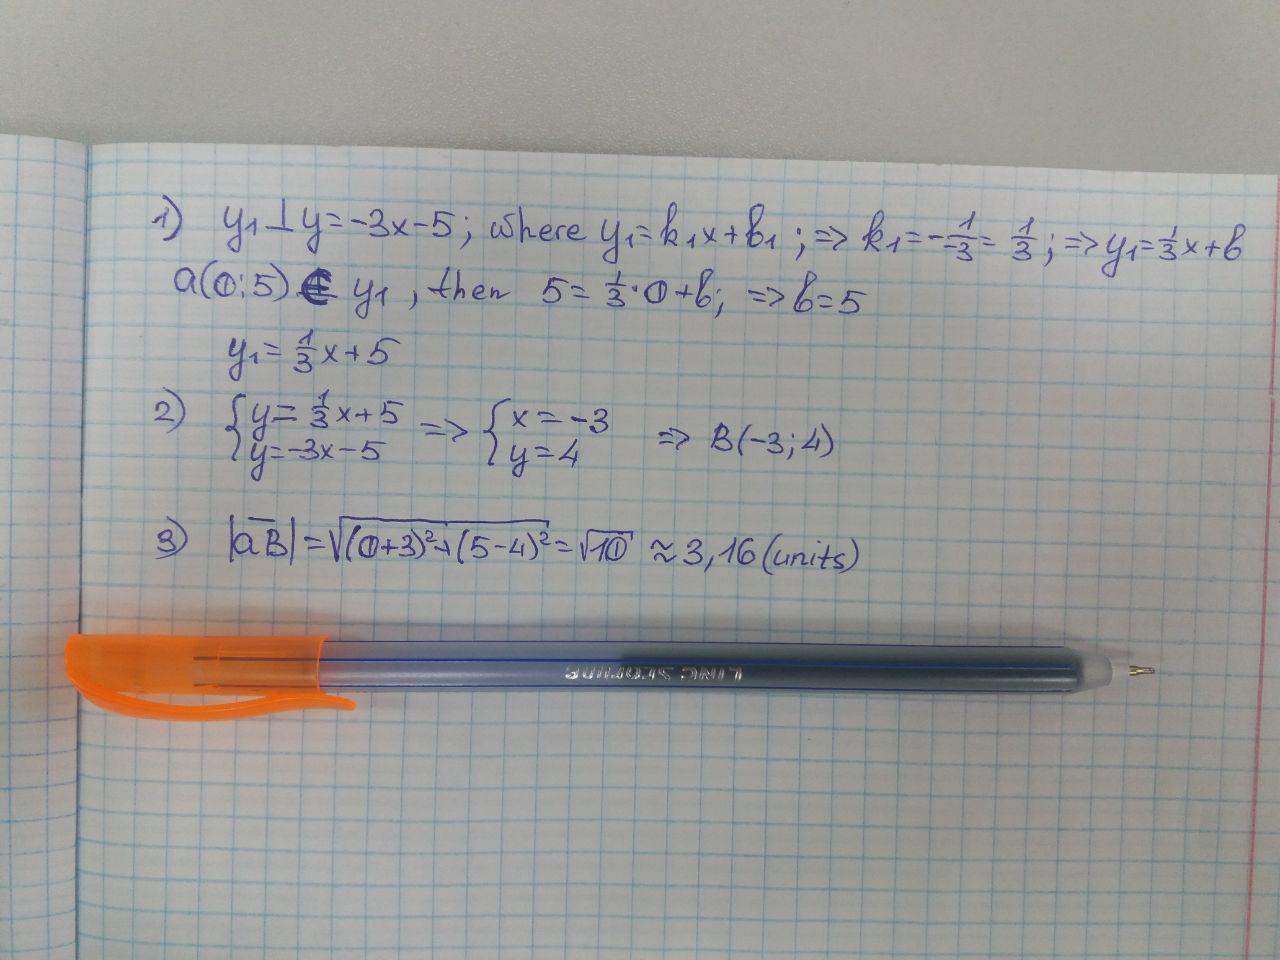 1) y₁⊥y=-3x-5; where y₁=k₁x+b₁; => k₁=-1/-3=1/3; => y₁=1/3x+b
a(0;5) ∈ y₁, then 5=1/3·0+b; => b=5
y₁=1/3x+5
2) {y=1/3x+5 => {x=-3 => B(-3;4)
y=-3x-5 y=4
3) |aB|=√(0+3)²+(5-4)²=√10 ≈3,16(units)
LINC